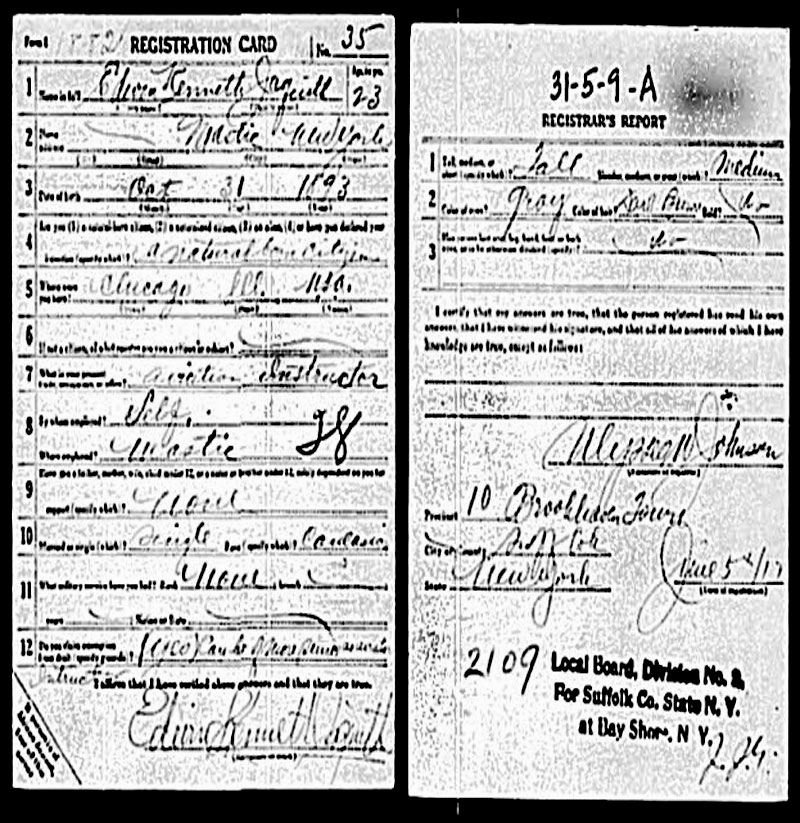 Form 1 REGISTRATION CARD No. 35
1 Kenneth Age, in yrs. 23
2 Mastic New York
3 Date of birth Oct 31 1893
4 Are you (1) a natural born citizen, (2) a naturalized citizen, (3) an alien, (4) or have you declared your
intention (specify which)? a natural born citizen
5 Where were you born? Chicago Ill. USA.
6 If not a citizen, of what country are you a citizen or subject?
7 What is your present trade, occupation, or office? aviation Instructor
8 By whom employed? Self.
Where employed? Mastic 28
9 Have you a father, mother, wife, child under 12, or a sister or brother under 12, solely dependent on you for
support (specify which)? None
10 Married or single (which)? Single Race (specify which)? Caucasian
11 What military service have you had? Rank None, branch
years Nation or State
12 Do you claim exemption from draft (specify grounds)?
Instructor I affirm that I have verified above answers and that they are true.
Kenneth
31-5-9-A
REGISTRAR'S REPORT
1 Tall, medium, or short (specify which)? Tall Slender, medium, or stout (which)? Medium
2 Color of eyes? Gray Color of hair? Dark Brown Bald? No
3 No
I certify that my answers are true, that the person registered has read his own
answers, that I have witnessed his signature, and that all of his answers of which I have
knowledge are true, except as follows:
Johnson
(Signature of registrar)
Precinct 10 Brookhaven Town
City or County Suffolk
State New York June 5th/17
(Date of registration)
2109 Local Board, Division No. 2,
For Suffolk Co. State N. Y.
at Bay Shore, N Y.